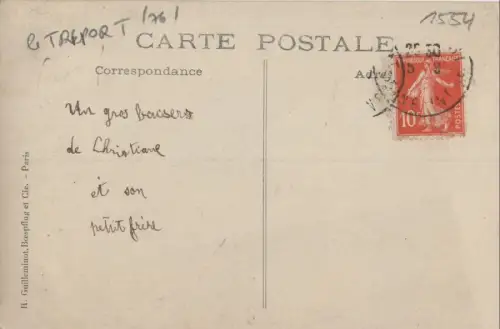 le TREPORT (76)
1554
CARTE POSTALE
Correspondance
Adre
Un gros baisers
de Christiane
et son
petit frère
10
POSTES
H. Guilleminot, Bœspflug et Cie. - Paris